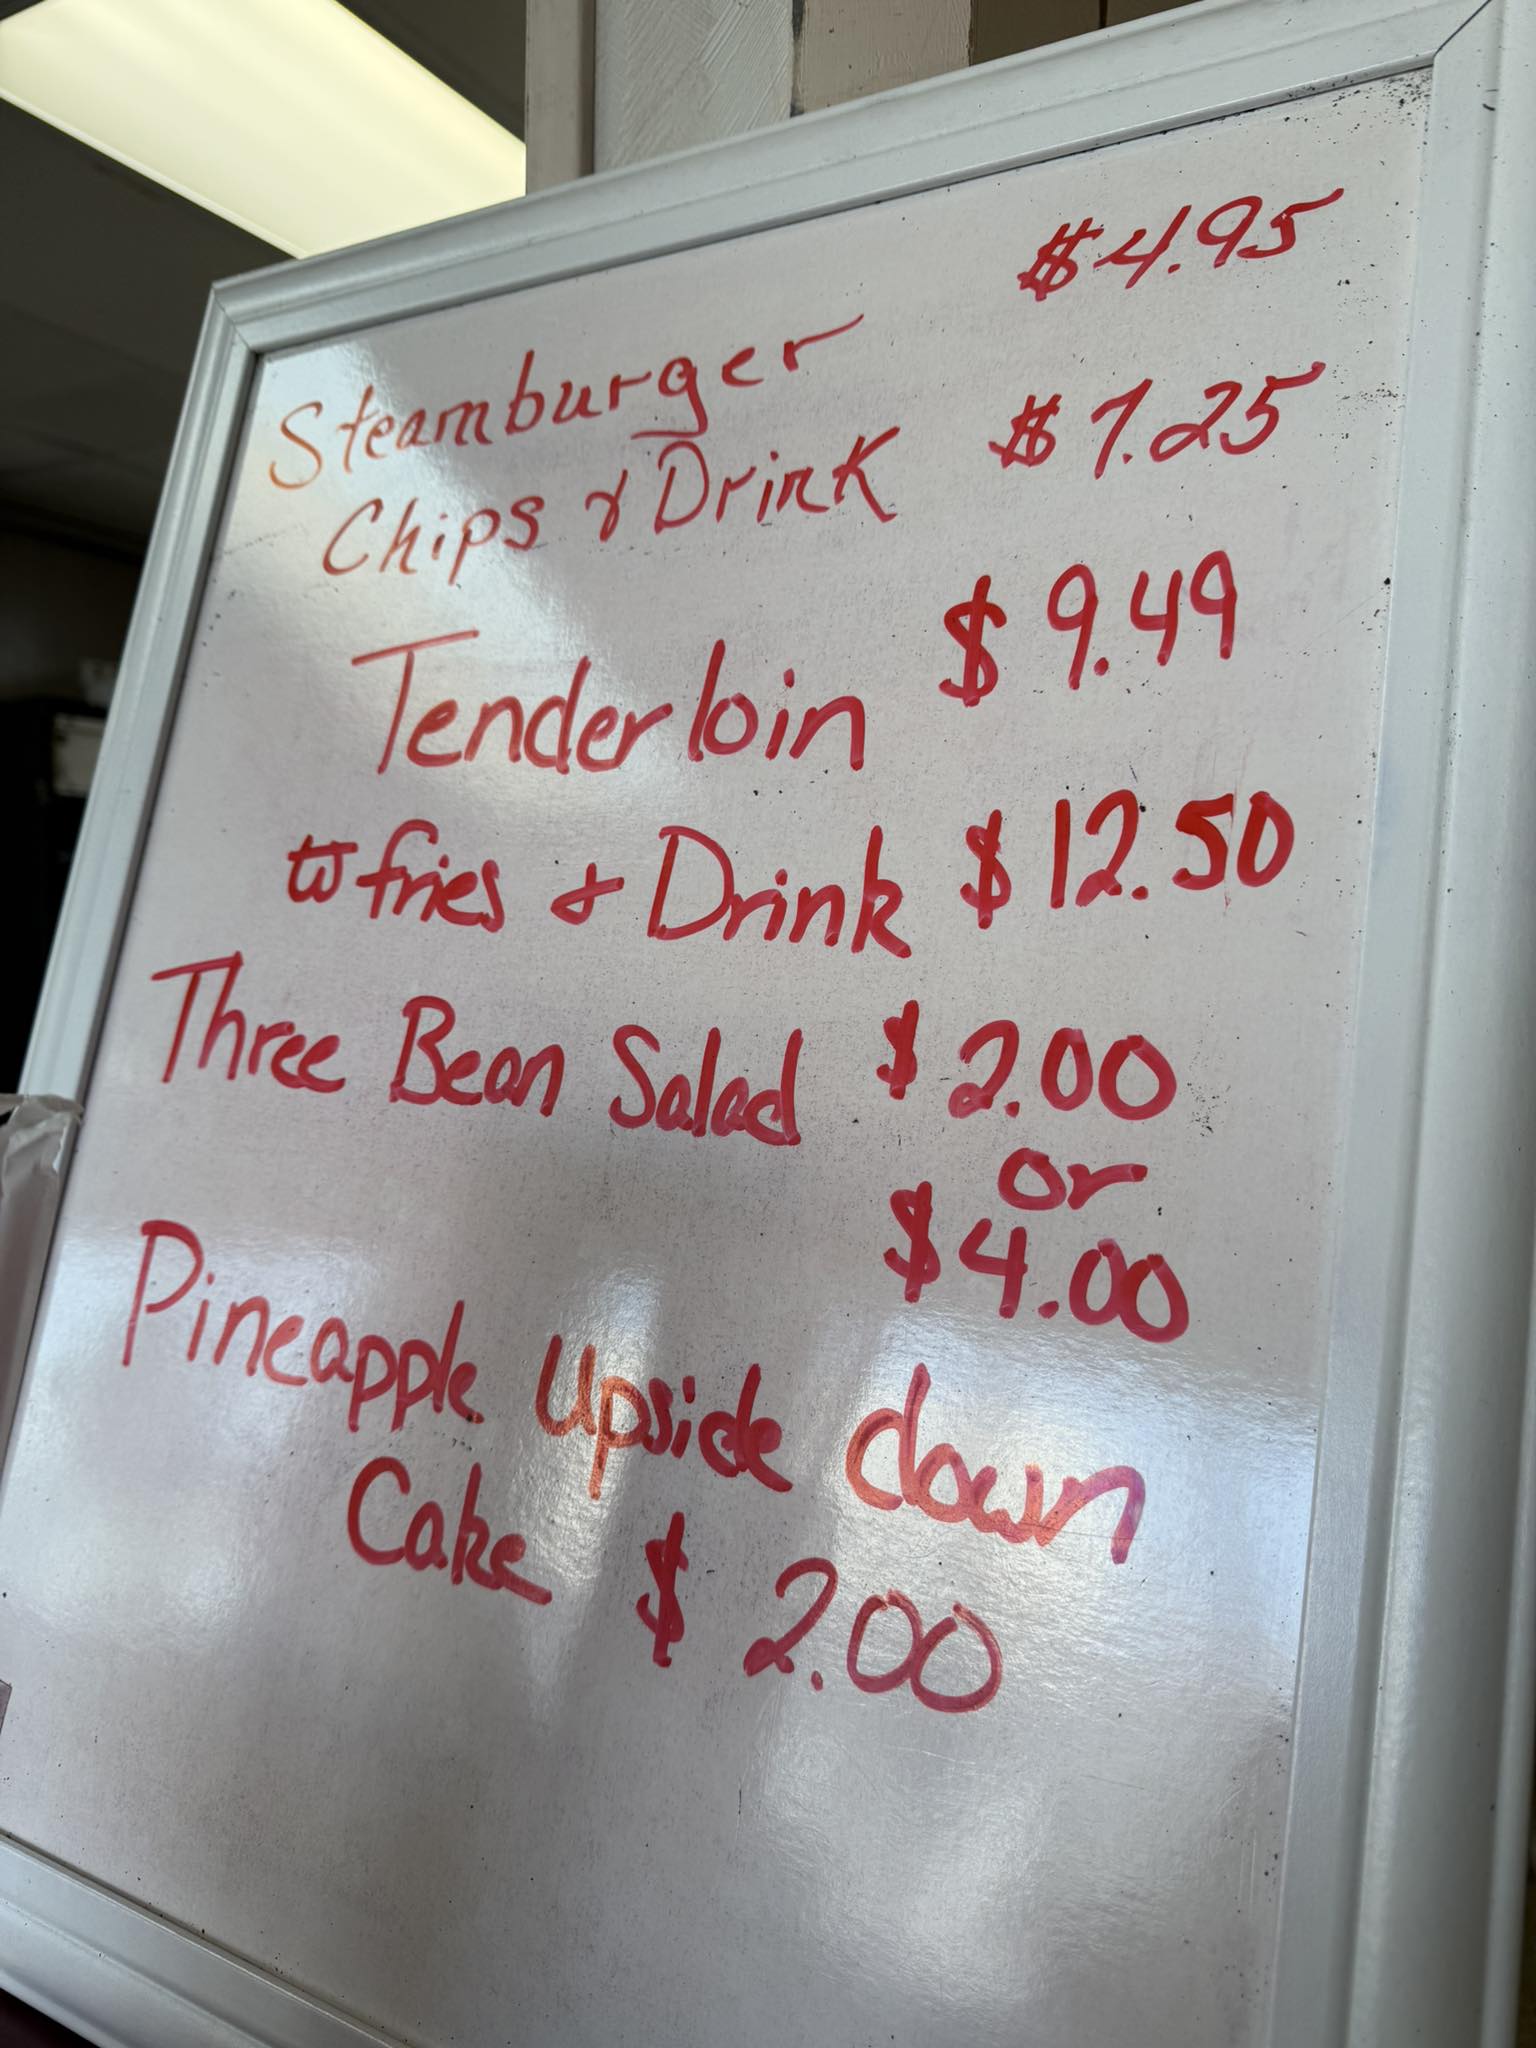 Steamburger $4.95
Chips & Drink $7.25
Tenderloin $9.49
w fries & Drink $12.50
Three Bean Salad $2.00
or
$4.00
Pineapple Upside down
Cake $2.00